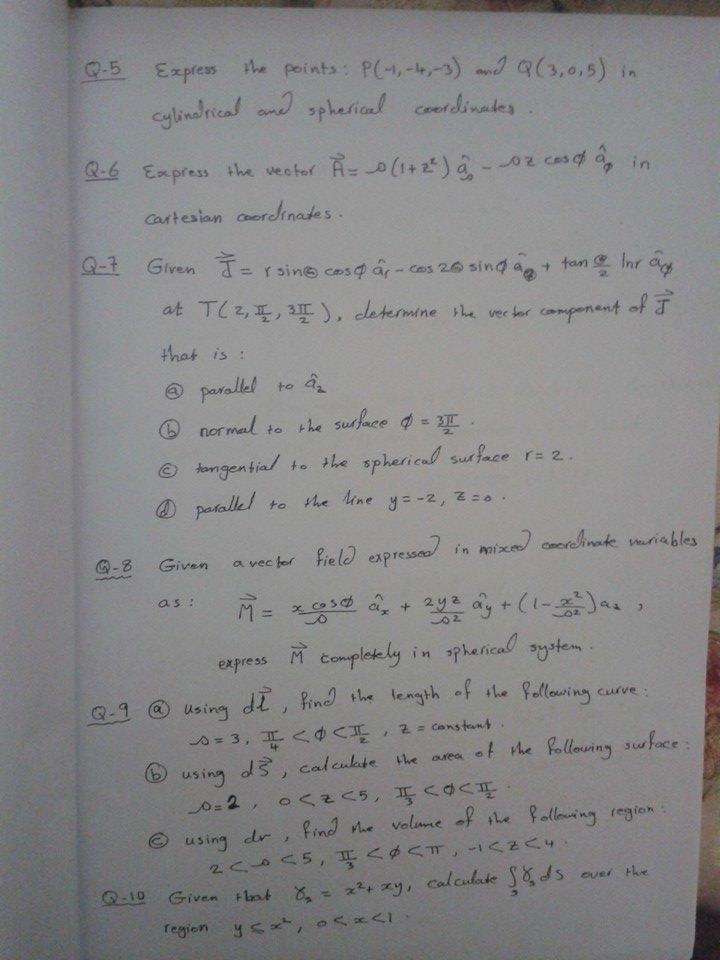 Q-5 Express the points: P(-1,-4,-3) and Q(3,0,5) in
cylindrical and spherical coordinates.
Q-6 Express the vector A⃗ = ρ(1+z²) âρ - ρz cosφ âφ in
cartesian coordinates.
Q-7 Given J⃗ = r sinθ cosφ âr - cos2θ sinφ âθ + tan θ/2 lnr âφ
at T(2, π/2, 3π/2), determine the vector component of J⃗
that is :
(a) parallel to âz
(b) normal to the surface φ = 3π/2.
(c) tangential to the spherical surface r=2.
(d) parallel to the line y=-2, z=0.
Q-8 Given a vector field expressed in mixed coordinate variables
as: M⃗ = x cosφ/ρ âx + 2yz/ρ² ây + (1- x²/ρ²)az ,
express M⃗ completely in spherical system.
Q-9 (a) using dl⃗, find the length of the following curve:
ρ=3, π/4 <φ< π/2, z=constant.
(b) using dS⃗, calculate the area of the following surface:
ρ=2, 0<z<5, π/3 <φ< π/2.
(c) using dv, find the volume of the following region:
2<ρ<5, π/3 <φ<π, -1<z<4.
Q-10 Given that γs = x²+xy, calculate ∫s γs ds over the
region y≤x², 0<x<1.